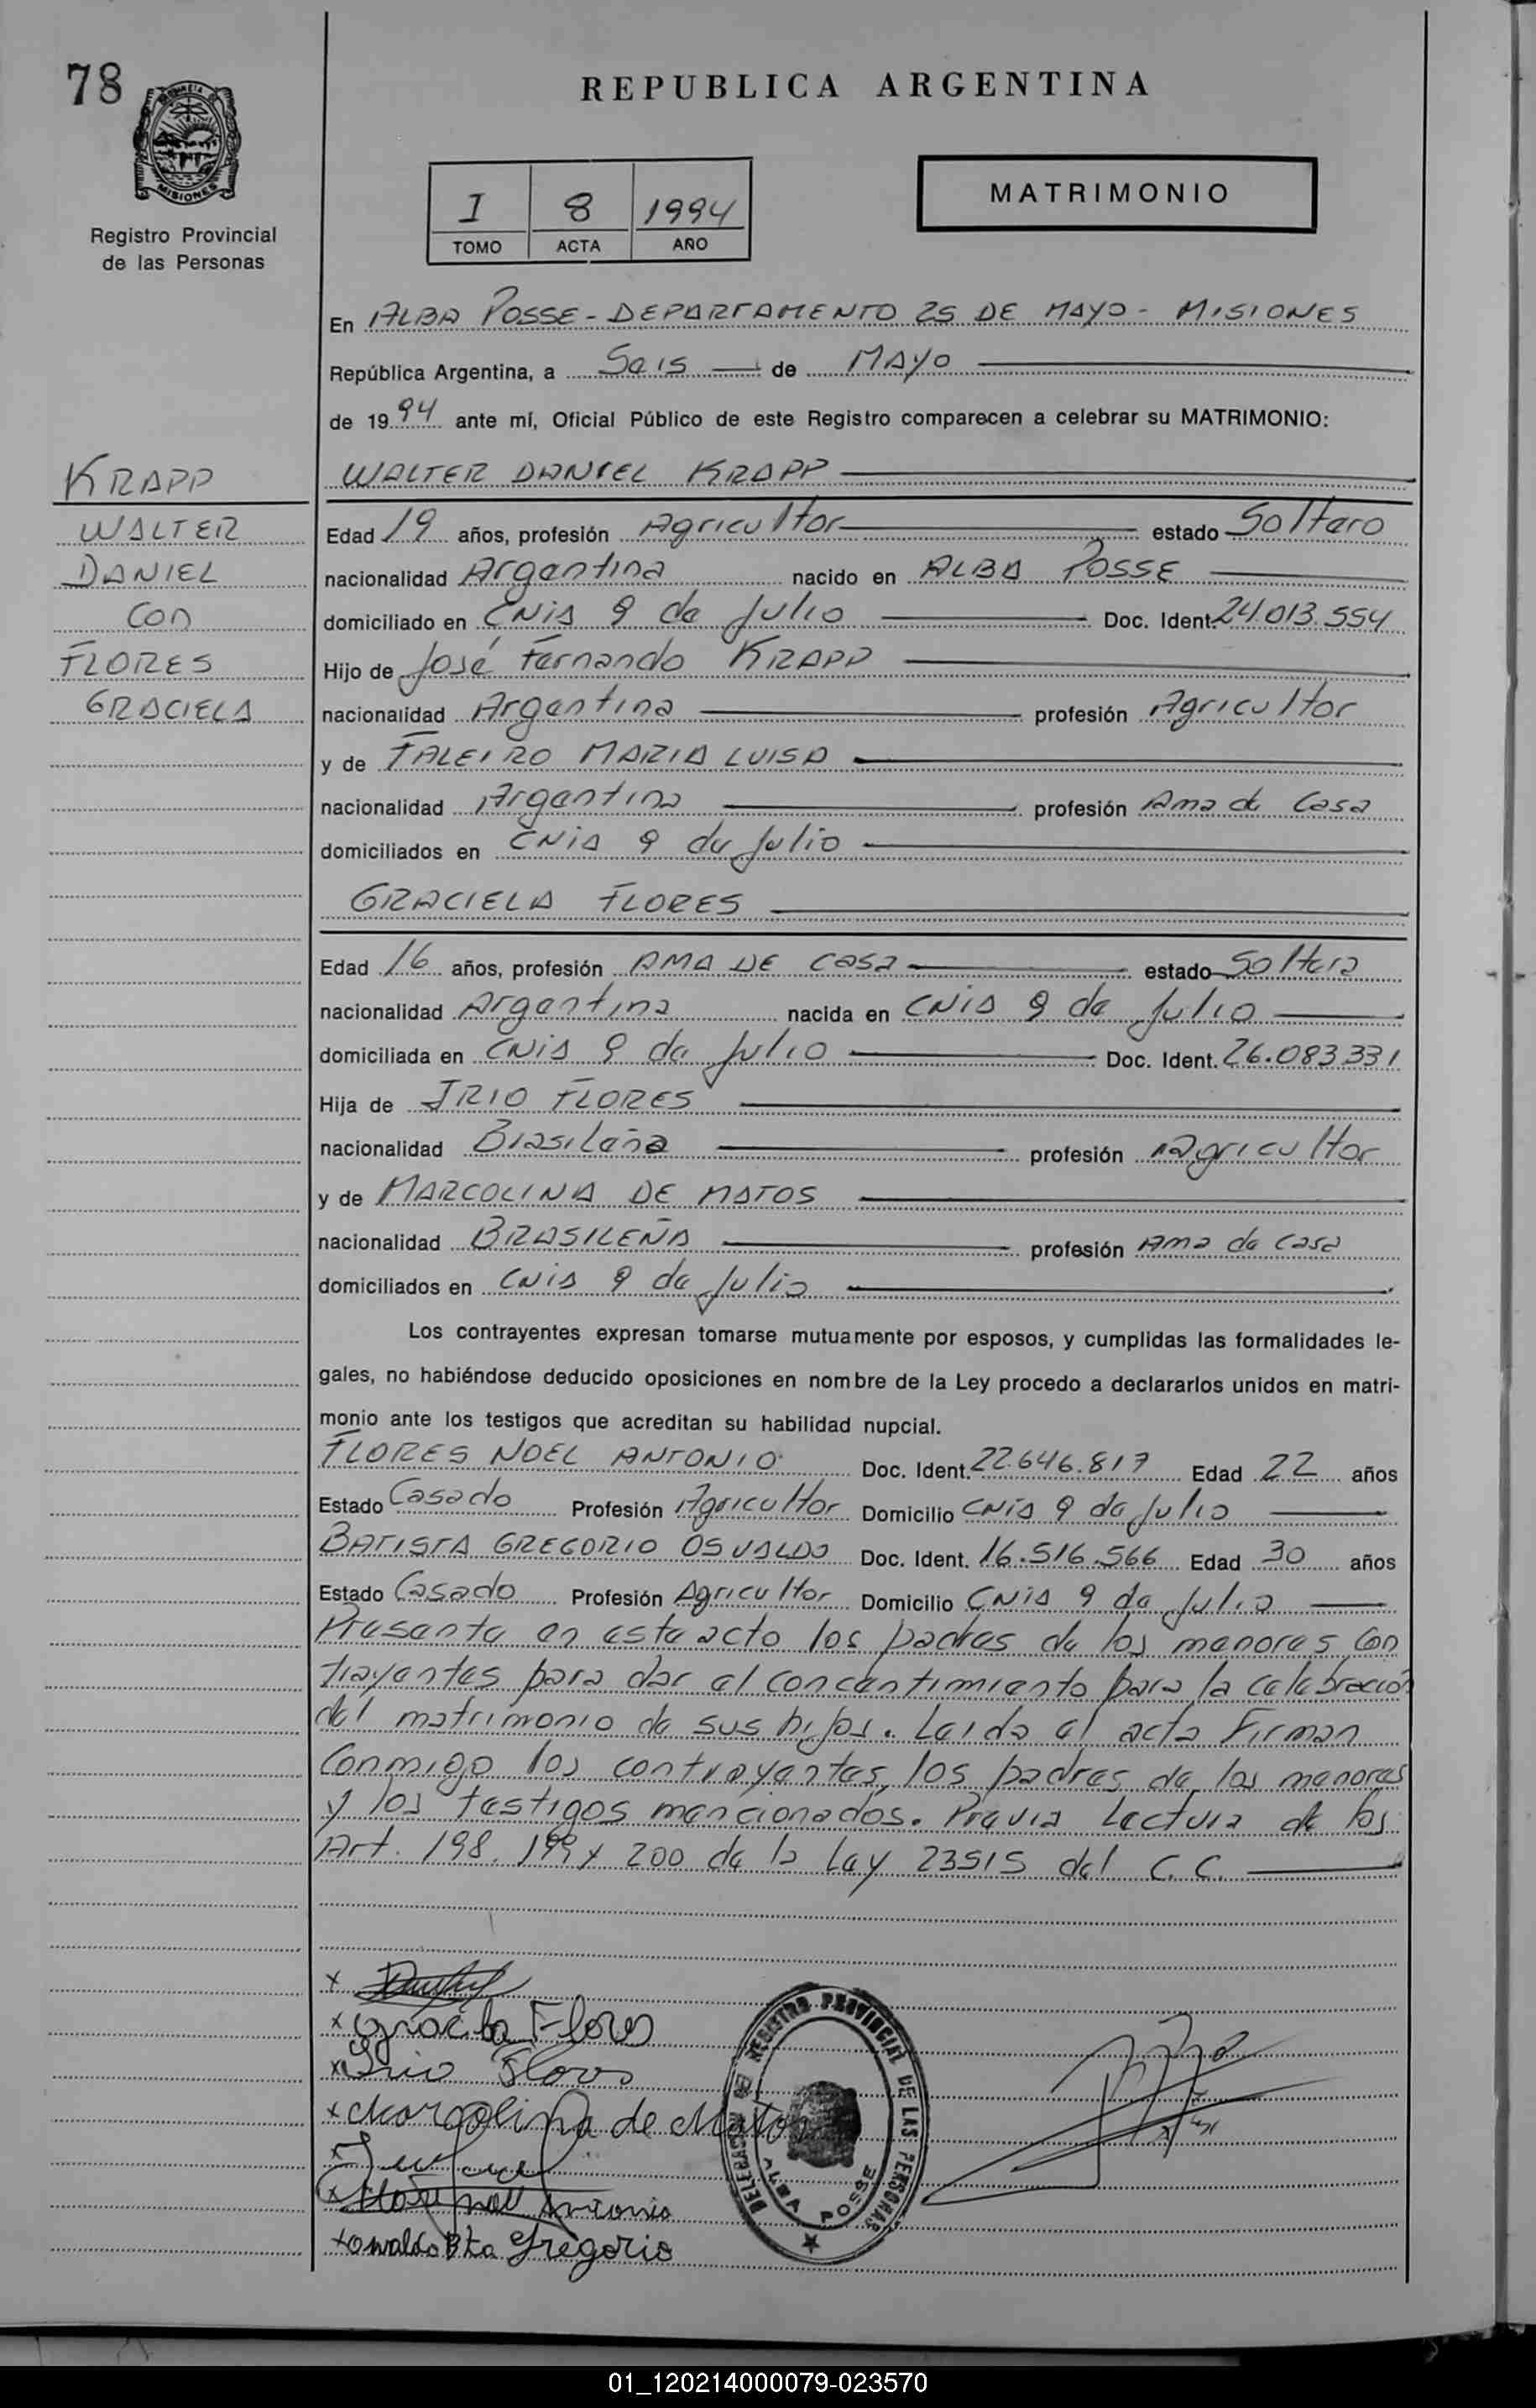 78
REPUBLICA ARGENTINA
MISIONES
Registro Provincial
de las Personas
I 8 1994
TOMO ACTA AÑO
MATRIMONIO
En ALBA POSSE - DEPARTAMENTO 25 DE MAYO - MISIONES
República Argentina, a Seis de MAYO
de 1994 ante mí, Oficial Público de este Registro comparecen a celebrar su MATRIMONIO:
KRAPP
WALTER
DANIEL
con
FLORES
GRACIELA
WALTER DANIEL KRAPP
Edad 19 años, profesión Agricultor estado Soltero
nacionalidad Argentina nacido en ALBA POSSE
domiciliado en CNIA 9 de Julio Doc. Ident. 24.013.554
Hijo de José Fernando KRAPP
nacionalidad Argentina profesión Agricultor
y de FALEIRO MARIA LUISA
nacionalidad Argentina profesión Ama de Casa
domiciliados en CNIA 9 de Julio
GRACIELA FLORES
Edad 16 años, profesión AMA DE Casa estado Soltera
nacionalidad Argentina nacida en CNIA 9 de Julio
domiciliada en CNIA 9 de Julio Doc. Ident. 26.083331
Hija de IRIO FLORES
nacionalidad Brasileña profesión Agricultor
y de MARCOLINA DE MATOS
nacionalidad BRASILEÑA profesión Ama de casa
domiciliados en CNIA 9 de Julio
Los contrayentes expresan tomarse mutuamente por esposos, y cumplidas las formalidades le-
gales, no habiéndose deducido oposiciones en nombre de la Ley procedo a declararlos unidos en matri-
monio ante los testigos que acreditan su habilidad nupcial.
FLORES NOEL ANTONIO Doc. Ident. 22.646.817 Edad 22 años
Estado Casado Profesión Agricultor Domicilio CNIA 9 de Julio
BATISTA GREGORIO OSVALDO Doc. Ident. 16.516.566 Edad 30 años
Estado Casado Profesión Agricultor Domicilio CNIA 9 de Julio
Presente en este acto los padres de los menores con
trayentes para dar el concentimiento para la celebración
del matrimonio de sus hijos. Leida el acta Firman
Conmigo los contrayentes, los padres de los menores
y los testigos mencionados. Previa Lectura de los
Art. 198, 199 y 200 de la Ley 23515 del C.C.
x Graciela Flores
x Irio Flores
x Marcolina de Matos
x Antonio
x Osvaldo Bta Gregorio
REGISTRO PROVINCIAL DE LAS PERSONAS
ALBA POSSE
01_120214000079-023570